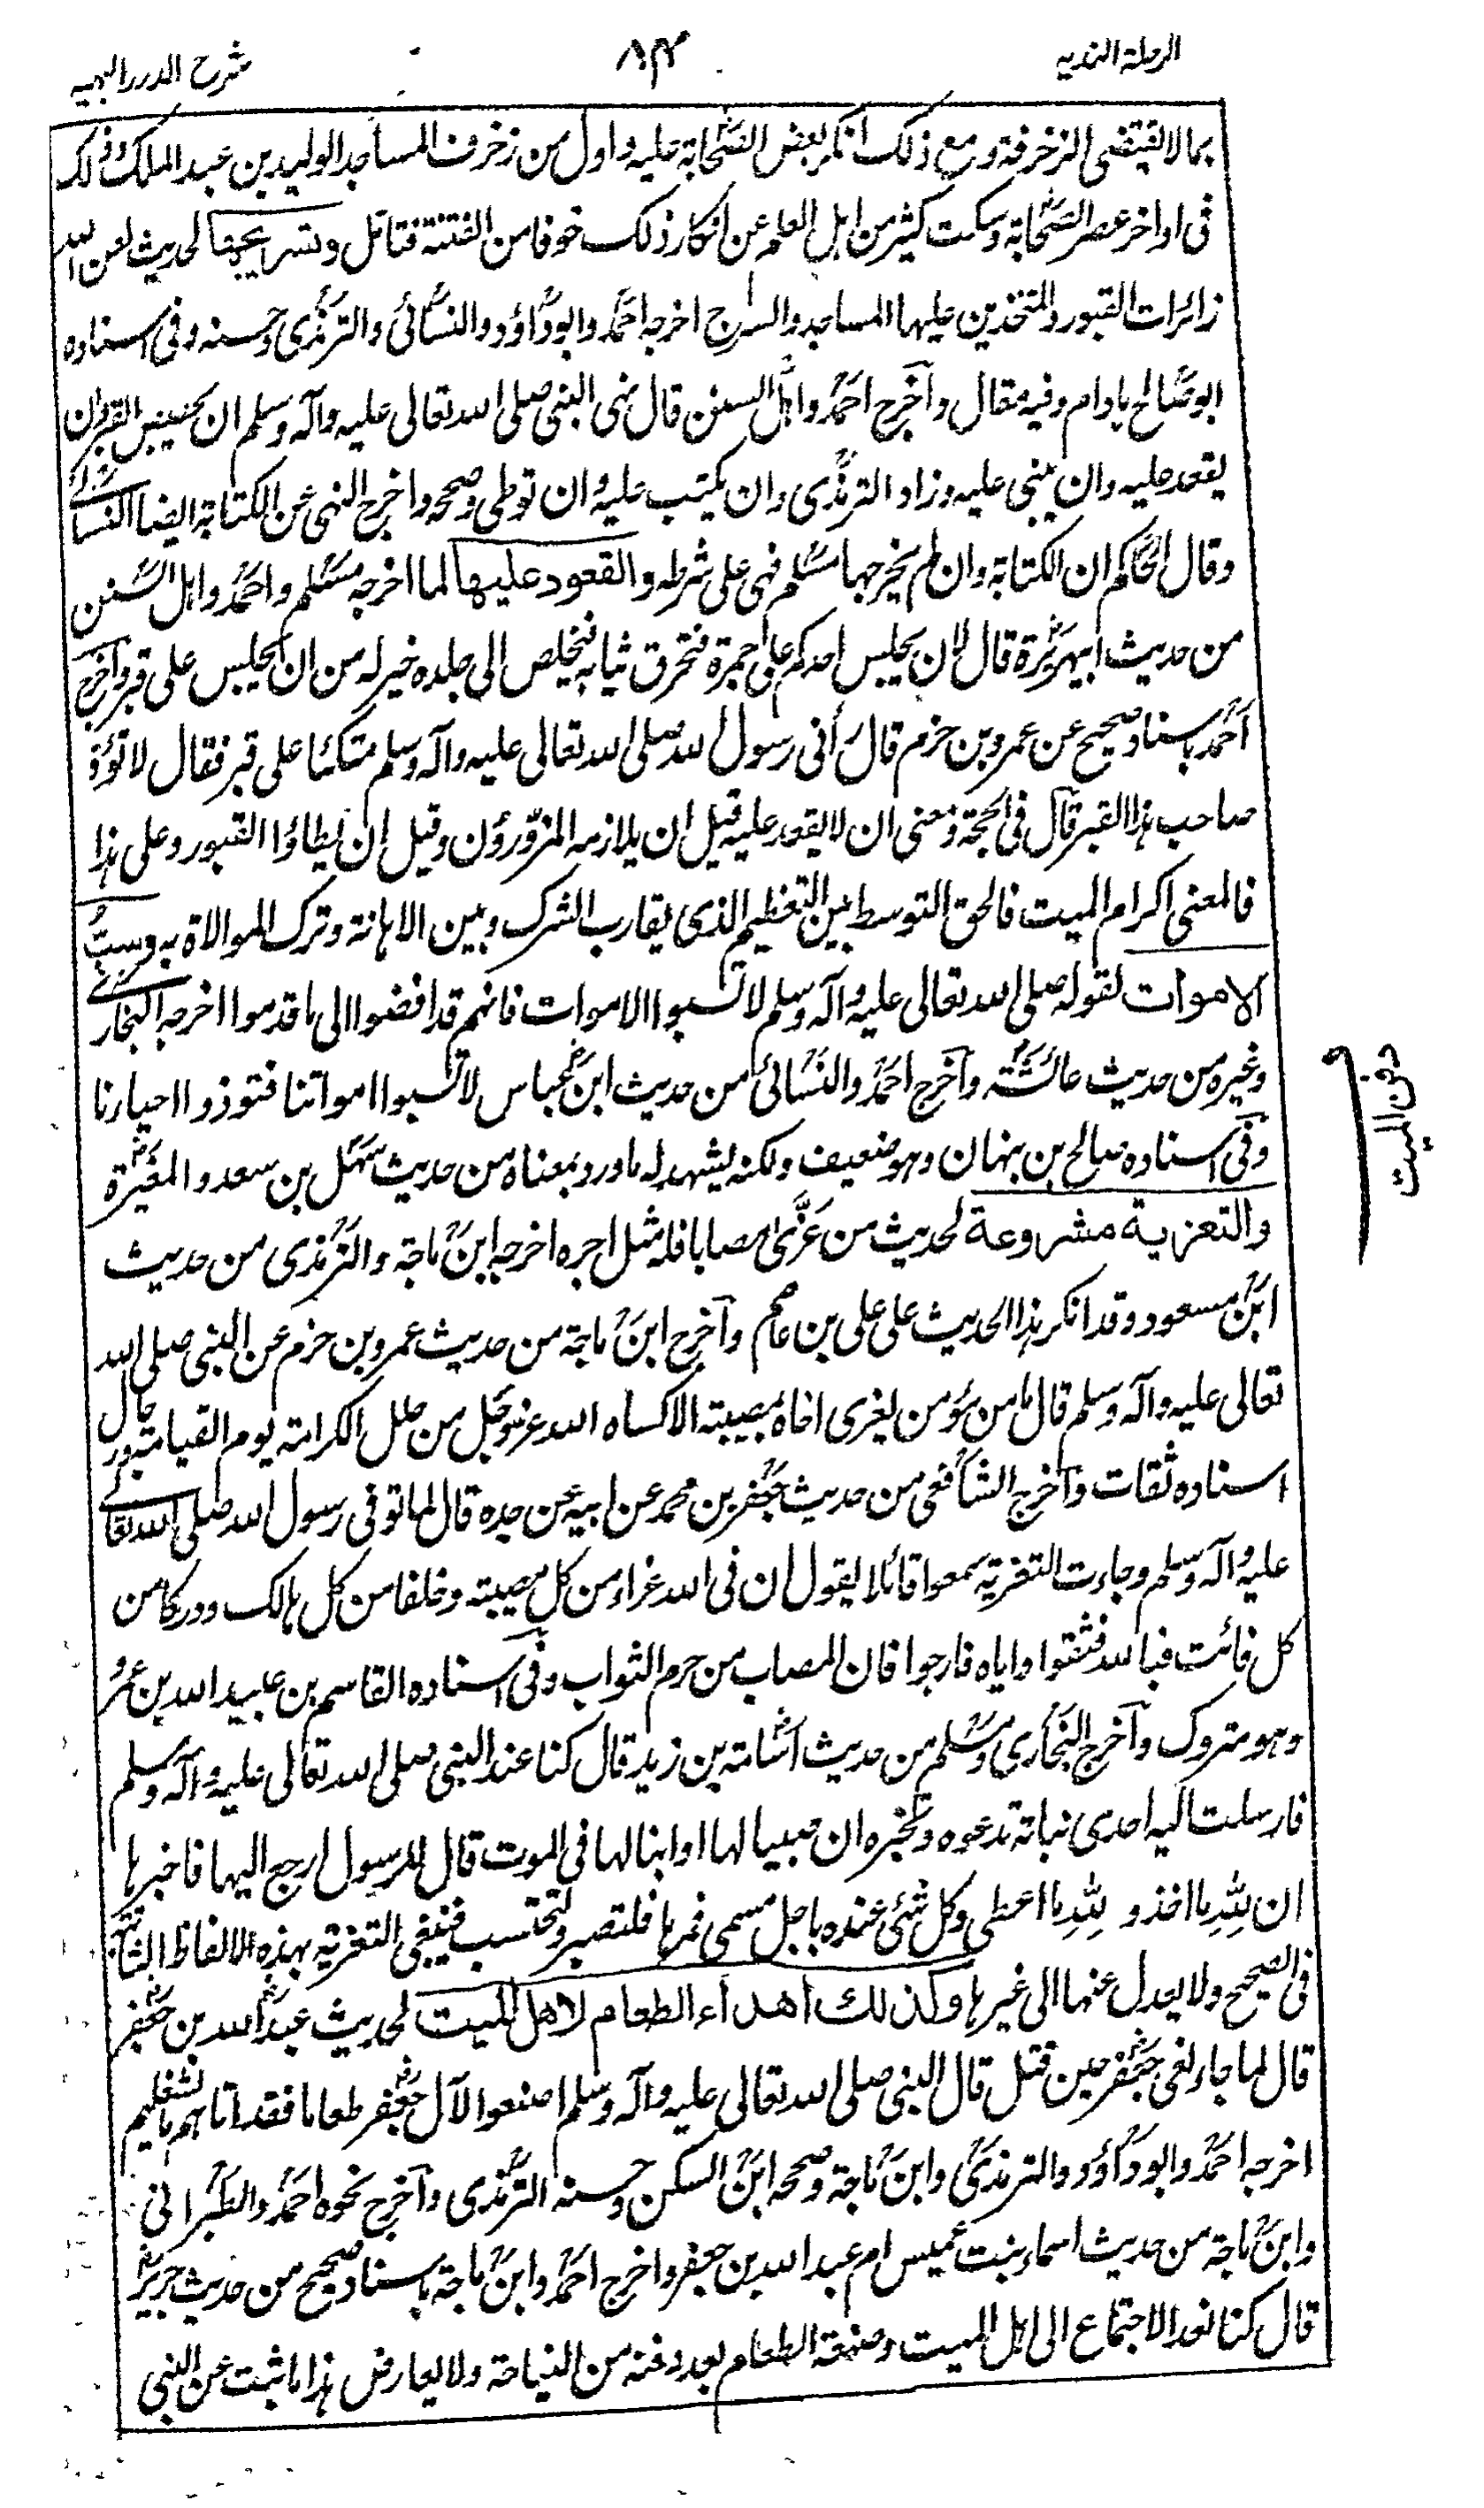 الرحلة الندیه ٨٣ شرح الدرر البهیه
بما لا یقتضی الزخرفة ومع ذلک انکر بعض الصحابة علیه واول من زخرف المساجد الولید بن عبد الملک وذلک
فی اواخر عصر الصحابة وسکت کثیر من اہل العلم عن انکار ذلک خوفا من الفتنة فتامل وتسریجها لحدیث لعن اللہ
زائرات القبور والمتخذین علیہا المساجد والسرج اخرجہ احمد وابوداؤد والنسائی والترمذی وحسنہ وفی اسنادہ
ابوصالح باذام وفیہ مقال وآخرج احمد واہل السنن قال نہی النبی صلی اللہ تعالی علیہ وآلہ وسلم ان یجصص القبر وان
یقعد علیہ وان یبنی علیہ وزاد الترمذی وان یکتب علیہ وان توطی وصححہ واخرج النہی عن الکتابة ایضا النسائی
وقال الحاکم ان الکتابة وان لم یخرجہا مسلم فہی علی شرطہ والقعود علیها لما اخرجہ مسلم واحمد واہل السنن
من حدیث ابیہریرة قال لان یجلس احدکم علی جمرة فتحرق ثیابہ فتخلص الی جلدہ خیر لہ من ان یجلس علی قبر وآخرج
احمد باسناد صحیح عن عمرو بن حزم قال رأنی رسول اللہ صلی اللہ تعالی علیہ وآلہ وسلم متکئا علی قبر فقال لا تؤذ
صاحب ہذا القبر قال فی الحجة ومعنی ان لا یقعد علیہ قیل ان یلازمہ المزورون وقیل ان یطاؤا القبور وعلی ہذا
فالمعنی اکرام المیت فالحق التوسط بین التعظیم الذی یقارب الشرک وبین الاہانة وترک الموالاة بہ وسب
الاموات لقولہ صلی اللہ تعالی علیہ وآلہ وسلم لا تسبوا الاموات فانہم قد افضوا الی ما قدموا اخرجہ البخاری
وغیرہ من حدیث عائشة وآخرج احمد والنسائی من حدیث ابن عباس لا تسبوا امواتنا فتوذوا احیارنا
وفی اسنادہ صالح بن نبہان وہو ضعیف ولکنہ یشہد لہ ما ورد بمعناہ من حدیث سہل بن سعد والمغیرة
والتعزیة مشروعة لحدیث من عزی مصابا فلہ مثل اجرہ اخرجہ ابن ماجة والترمذی من حدیث
ابن مسعود وقد انکر ہذا الحدیث علی علی بن عاصم وآخرج ابن ماجة من حدیث عمرو بن حزم عن النبی صلی اللہ
تعالی علیہ وآلہ وسلم قال ما من مؤمن یعزی اخاہ بمصیبتہ الا کساہ اللہ عزوجل من حلل الکرامة یوم القیامة ورجال
اسنادہ ثقات وآخرج الشافعی من حدیث جعفر بن محمد عن ابیہ عن جدہ قال لما توفی رسول اللہ صلی اللہ تعالی
علیہ وآلہ وسلم وجاءت التعزیة سمعوا قائلا یقول ان فی اللہ عزاء من کل مصیبة وخلفا من کل ہالک ودرکا من
کل فائت فباللہ فثقوا وایاہ فارجوا فان المصاب من حرم الثواب وفی اسنادہ القاسم بن عبید اللہ بن عمر
وہو متروک وآخرج البخاری ومسلم من حدیث اسامة بن زید قال کنا عند النبی صلی اللہ تعالی علیہ وآلہ وسلم
فارسلت الیہ احدی بناتہ تدعوہ وتخبرہ ان صبیا لہا او ابنا لہا فی الموت قال للرسول ارجع الیہا فاخبرہا
ان للہ ما اخذ و للہ ما اعطی وکل شئ عندہ باجل مسمی فمرہا فلتصبر ولتحتسب فینبغی التعزیة بہذہ الالفاظ الثابتة
فی الصحیح ولا یعدل عنہا الی غیرہا وکذلك اهداء الطعام لاهل المیت لحدیث عبد اللہ بن جعفر
قال لما جاء نعی جعفر حین قتل قال النبی صلی اللہ تعالی علیہ وآلہ وسلم اصنعوا لآل جعفر طعاما فقد اتاہم ما یشغلہم
اخرجہ احمد وابوداؤد والترمذی وابن ماجة وصححہ ابن السکن وحسنہ الترمذی وآخرج نحوہ احمد والطبرانی
وابن ماجة من حدیث اسماء بنت عمیس ام عبد اللہ بن جعفر واخرج احمد وابن ماجة باسناد صحیح من حدیث جریر
قال کنا نعد الاجتماع الی اہل المیت وصنعة الطعام بعد دفنہ من النیاحة ولا یعارض ہذا ما ثبت عن النبی
دفن المیت